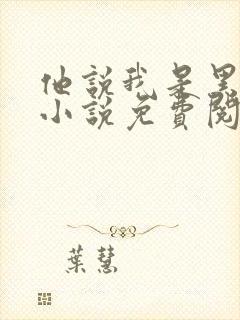 他說我是黑
小說免費閱
葉慧